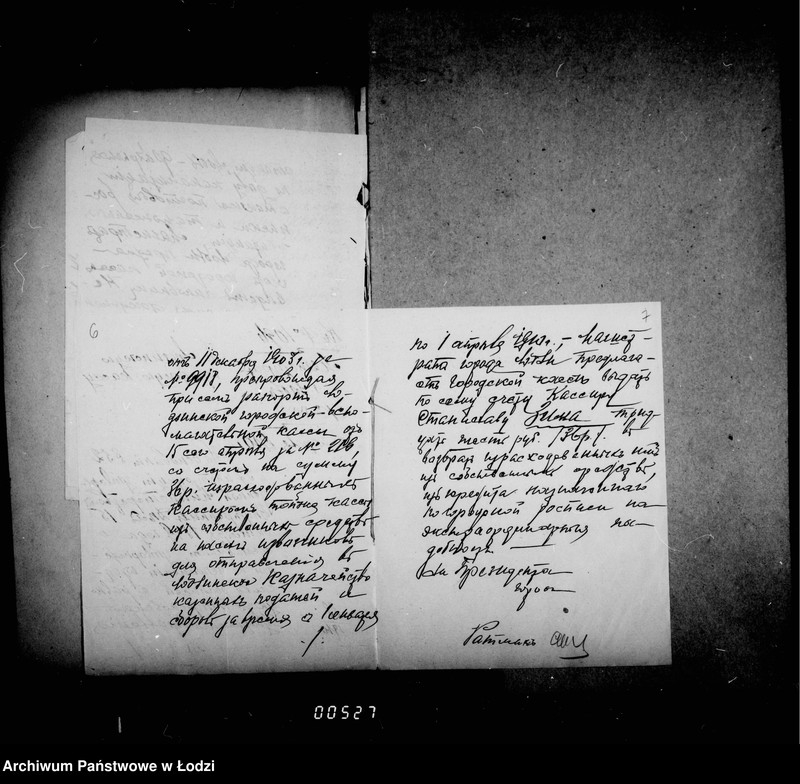 6
отъ 11 декабря 1903 г. за
№ 9918, препровождая
при семъ рапортъ Ло-
дзинской городской вспо-
магательной кассы отъ
15 сего апрѣля за №
со счетомъ на сумму
36 р. израсходованныхъ
Кассиромъ той же кассы
изъ собственныхъ средствъ
на наемъ извозчиковъ
для отправленія въ
Лодзинское Казначейство
казенныхъ податей и
сборовъ за время съ 1 января
7
по 1 апрѣля г., Магист-
ратъ города Лодзи предлага-
етъ Городской кассѣ выдать
по сему счету Кассиру
Станиславу трид-
цать шесть руб. /36 р./ въ
возвратъ израсходованныхъ имъ
изъ собственныхъ средствъ,
изъ кредита назначеннаго
по городской росписи на
экстраординарные
За Президента
Ратманъ
00527
Archiwum Państwowe w Łodzi